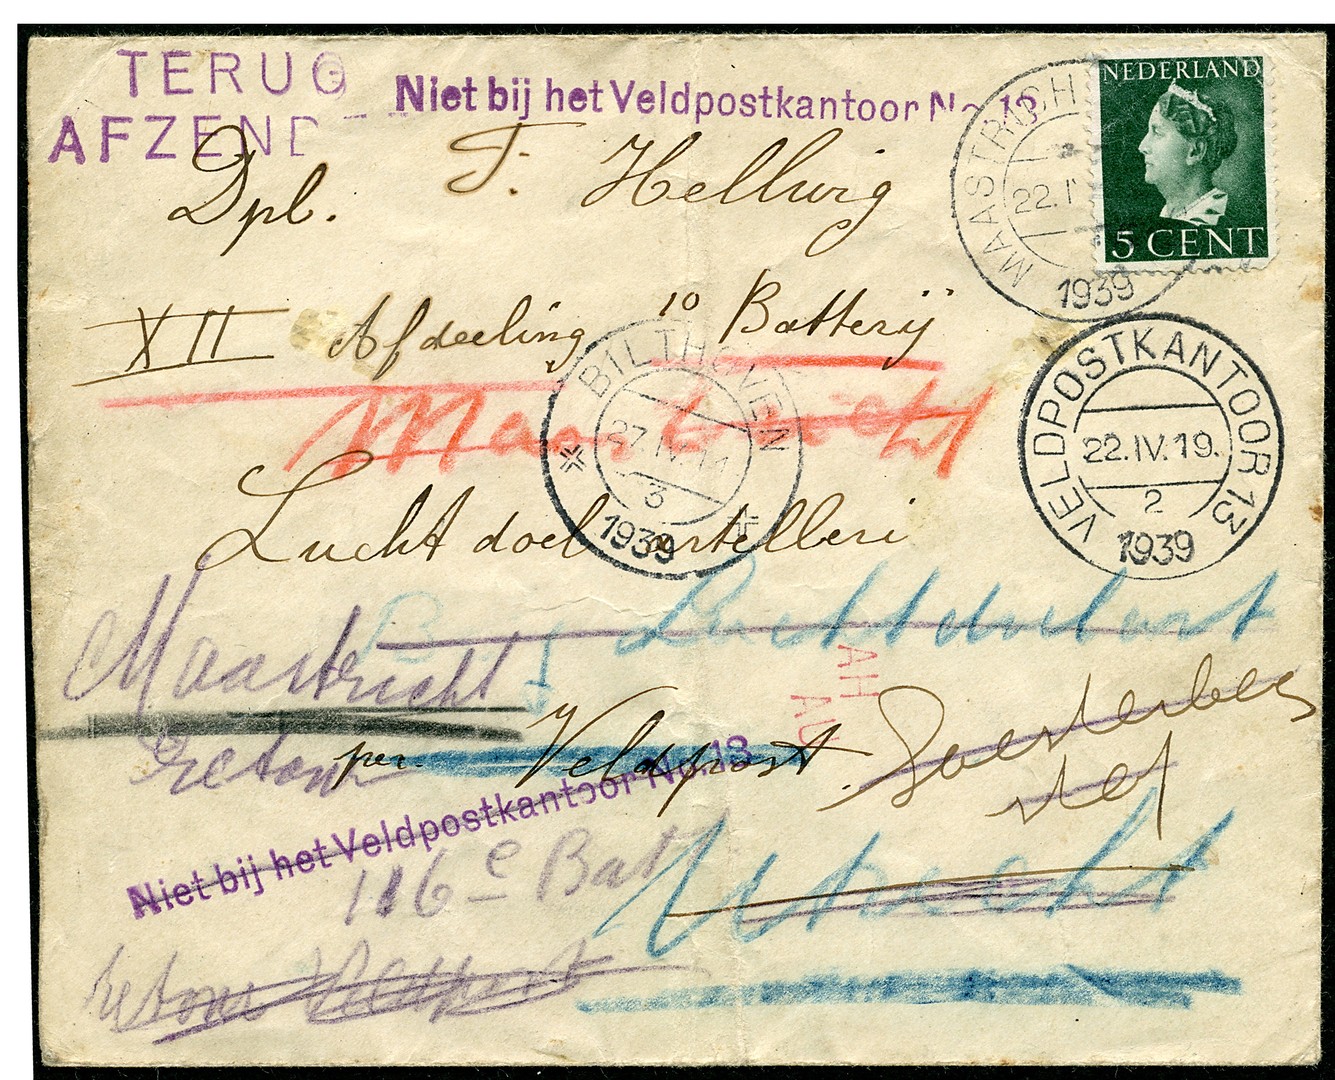 TERUG
AFZEND
Niet bij het Veldpostkantoor No. 13
NEDERLAND
5 CENT
MAASTRICH
22.IV
1939
Dpl. F. Hellwig
XII Afdeeling 10 Batterij
Maastricht
BILTHOVEN
27.IV.
3
1939
VELDPOSTKANTOOR 13
22.IV.19.
2
1939
Luchtdoel artelleri
Maastricht
retour
per Veldpost
Soesterberg
Niet bij het Veldpostkantoor No. 13
116e Batt
Utrecht
retour Veldpost
AH
AU